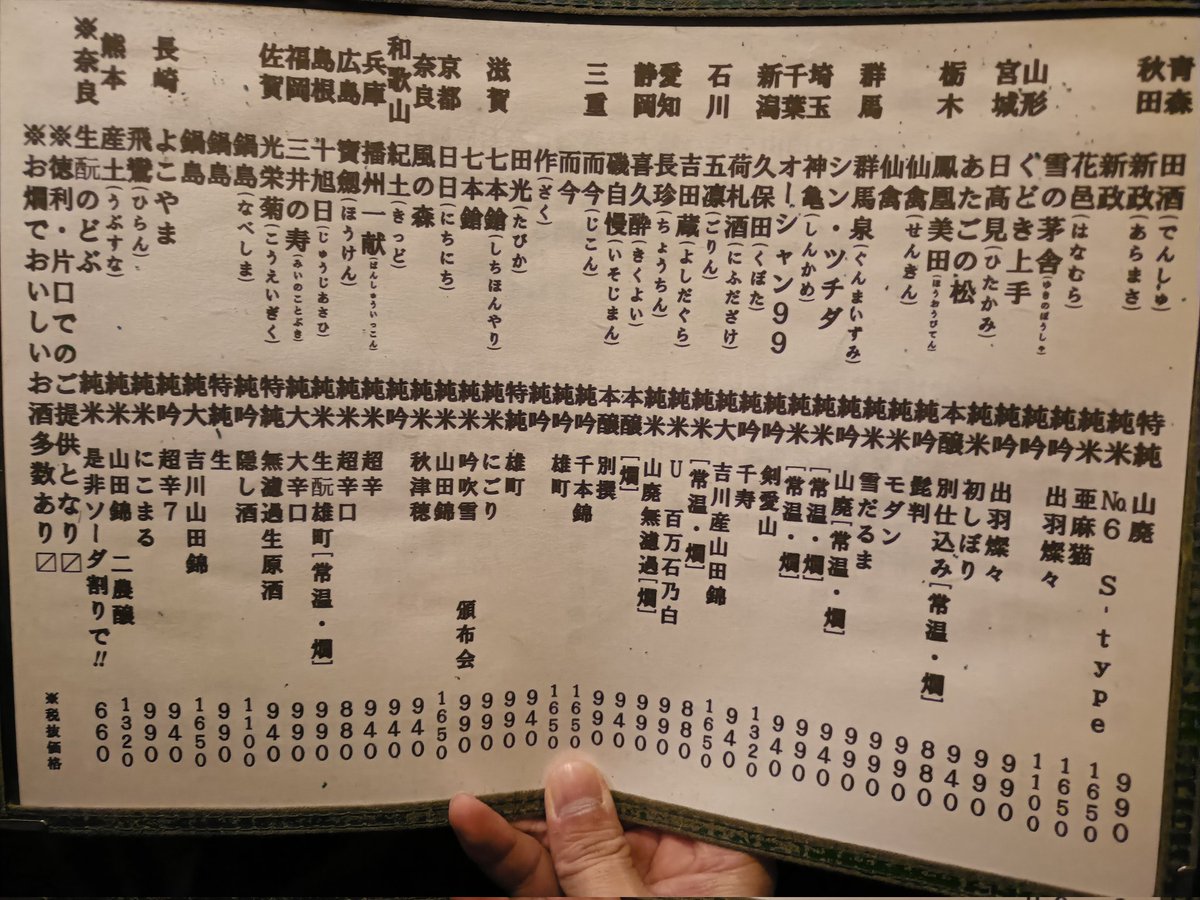 青森 田酒(でんしゅ) 特純 山廃 990
秋田 新政(あらまさ) 純米 No.6 S-type 1650
新政 純米 亜麻猫 1650
花邑(はなむら) 純吟 出羽燦々 1100
雪の茅舎(ゆきのぼうしゃ) 純吟 990
山形 ぐどき上手 純吟 出羽燦々 990
宮城 日高見(ひたかみ) 純米 初しぼり 940
あたごの松 本醸 別仕込み[常温・燗] 880
栃木 鳳凰美田(ほうおうびでん) 純吟 髭判 990
仙禽(せんきん) 純米 モダン 990
仙禽 純米 雪だるま 990
群馬 群馬泉(ぐんまいずみ) 純吟 山廃[常温・燗] 940
シン・ツチダ 純米 [常温・燗] 990
埼玉 神亀(しんかめ) 純米 [常温・燗] 940
千葉 オーシャン99 純吟 剣愛山 1320
新潟 久保田(くぼた) 純吟 千寿 940
荷札酒(にふだざけ) 純大 吉川産山田錦 1650
石川 五凛(ごりん) 純米 [常温・燗] 880
吉田蔵(よしだぐら) 純米 U 百万石乃白 990
愛知 長珍(ちょうちん) 純米 山廃無濾過[燗] 990
静岡 喜久酔(きくよい) 本醸 [燗] 940
磯自慢(いそじまん) 本醸 別撰 990
三重 而今(じこん) 純吟 千本錦 1650
而今 純吟 雄町 1650
作(ざく) 純吟 940
田光(たびか) 特純 雄町 990
滋賀 七本鎗(しちほんやり) 純米 にごり 990
七本鎗 純米 吟吹雪 頒布会 990
京都 日日(にちにち) 純米 山田錦 1650
奈良 風の森 純米 秋津穂 940
和歌山 紀土(きっど) 純吟 940
兵庫 播州一献(ばんしゅういっこん) 純米 超辛 940
広島 寶劔(ほうけん) 純米 超辛口 880
島根 十旭日(じゅうじあさひ) 純米 生酛雄町[常温・燗] 990
福岡 三井の寿(みいのことぶき) 純大 大辛口 990
佐賀 光栄菊(こうえいぎく) 特純 無濾過生原酒 940
鍋島(なべしま) 純吟 隠し酒 1100
鍋島 特純 生 990
鍋島 純大 吉川山田錦 1650
長崎 よこやま 純吟 超辛7 940
飛鸞(ひらん) 純米 にこまる 990
熊本 産土(うぶすな) 純米 山田錦 二農醸 1320
※奈良 生酛のどぶ 純米 是非ソーダ割りで!! 660
※徳利・片口でのご提供となり〼
※お燗でおいしいお酒多数あり〼
※税抜価格